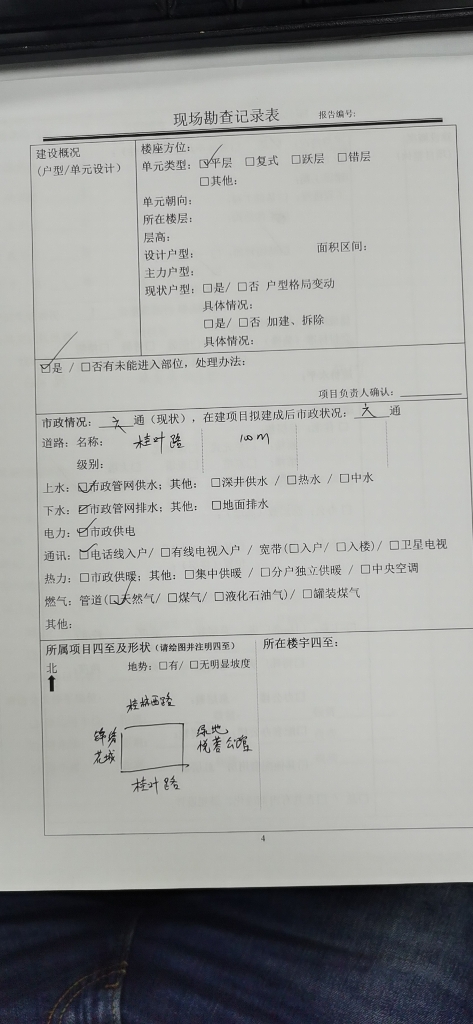 现场勘查记录表 报告编号:
建设概况
(户型/单元设计)
楼座方位:
单元类型: ☑平层 □复式 □跃层 □错层
□其他:
单元朝向:
所在楼层:
层高:
设计户型: 面积区间:
主力户型:
现状户型: □是/ □否 户型格局变动
具体情况:
□是/ □否 加建、拆除
具体情况:
☑是 / □否有未能进入部位, 处理办法:
项目负责人确认:
市政情况: 六 通(现状), 在建项目拟建成后市政状况: 六 通
道路: 名称: 桂叶路 100m
级别:
上水: ☑市政管网供水; 其他: □深井供水 / □热水 / □中水
下水: ☑市政管网排水; 其他: □地面排水
电力: ☑市政供电
通讯: ☑电话线入户/ □有线电视入户 / 宽带(□入户/ □入楼)/ □卫星电视
热力: □市政供暖; 其他: □集中供暖 / □分户独立供暖 / □中央空调
燃气: 管道(☑天然气/ □煤气/ □液化石油气)/ □罐装煤气
其他:
所属项目四至及形状 (请绘图并注明四至)
北 地势: □有/ □无明显坡度
桂林西路
锦绣
花城
绿地
悦蓉公馆
桂叶路
所在楼宇四至:
4